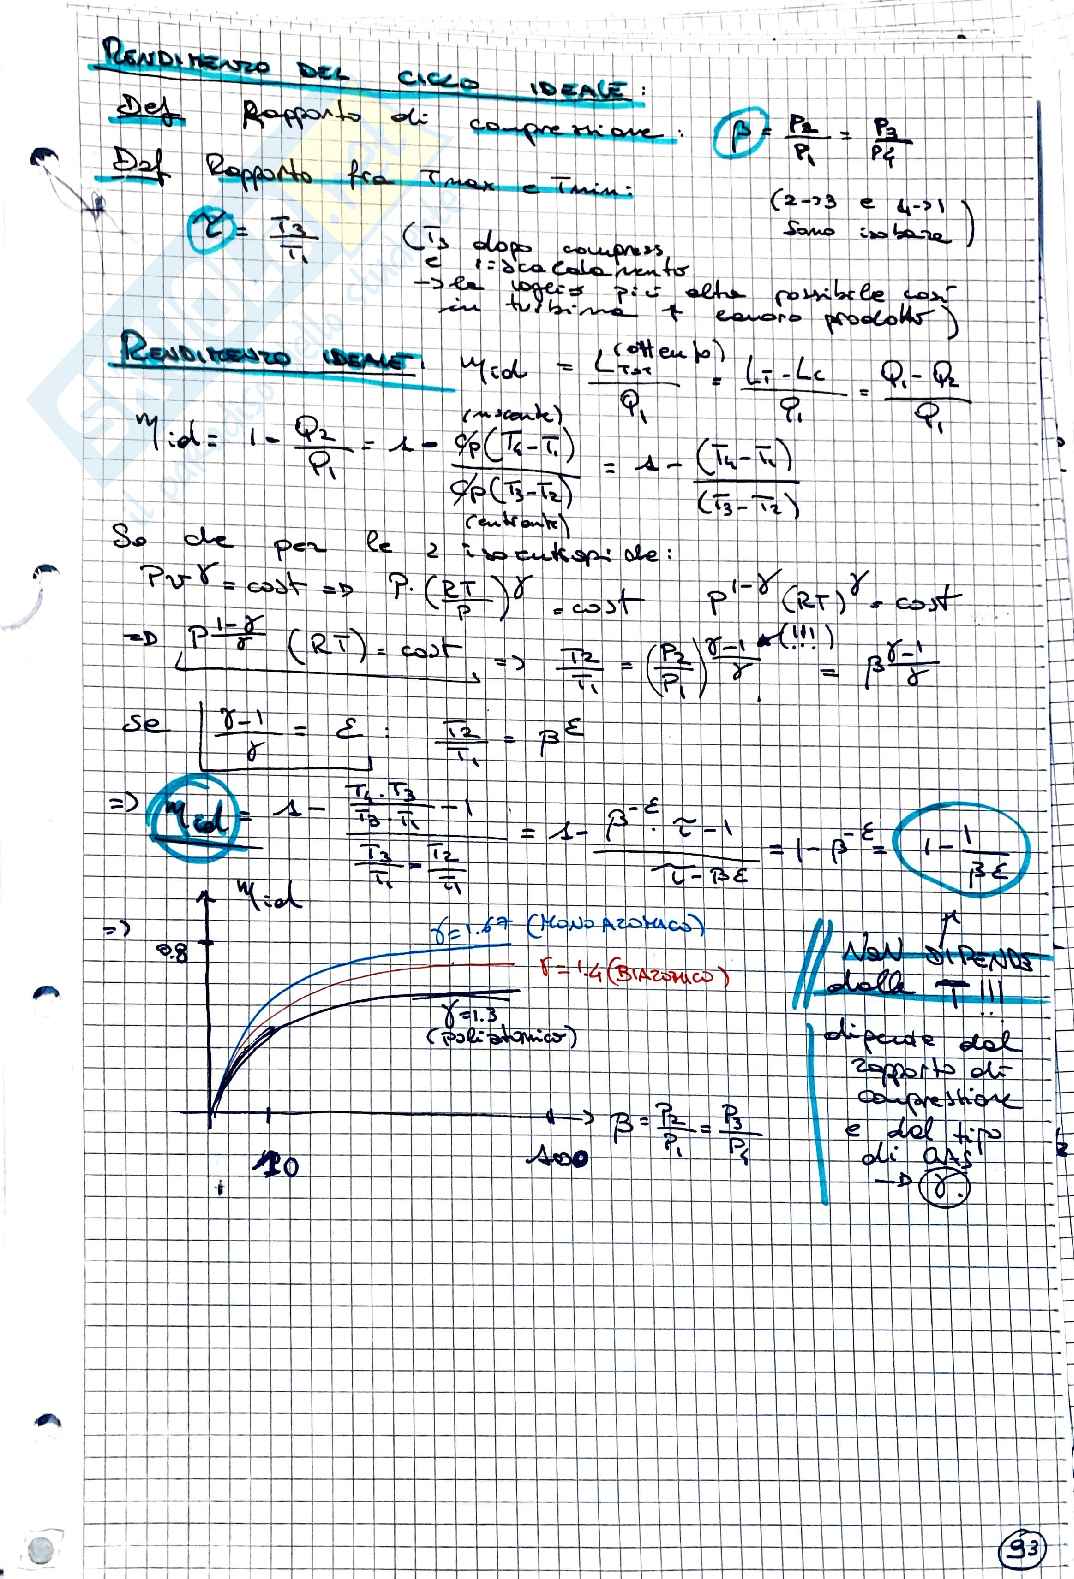 RENDIMENTO DEL CICLO IDEALE:
Def Rapporto di compressione: β = P2/P1 = P3/P4
Def Rapporto fra Tmax e Tmin:
(2->3 e 4->1 sono isobare)
τ = T3/T1 (T3 dopo compress
e riscaldamento
-> la voglio più alta possibile così
in turbina + lavoro prodotto)
RENDIMENTO IDEALE: ηid = L (ottenuto)/Q1 = (LT - LC)/Q1 = (Q1 - Q2)/Q1
ηid = 1 - Q2/Q1 = 1 - (uscente) cp(T4-T1)/cp(T3-T2) (entrante) = 1 - (T4-T1)/(T3-T2)
So che per le 2 isoentropiche:
Pv^γ = cost => P·(RT/P)^γ = cost P^(1-γ) (RT)^γ = cost
=> P^((1-γ)/γ) (RT) = cost => T2/T1 = (P2/P1)^((γ-1)/γ) (!!!) = β^((γ-1)/γ)
se (γ-1)/γ = ε : T2/T1 = β^ε
=> ηid = 1 - (T4·T3/T3·T1 - 1)/(T3/T1 - T2/T1) = 1 - (β^-ε · τ - 1)/(τ - β^ε) = 1 - β^-ε = 1 - 1/β^ε
=> ηid
0.8
γ=1.67 (MONOATOMICO)
γ=1.4 (BIATOMICO)
γ=1.3
(poliatomico)
10
100
β = P2/P1 = P3/P4
NON DIPENDE
dalle T!!!
dipende dal
rapporto di
compressione
e dal tipo
di GAS
-> γ.
93
il paradiso dello studente